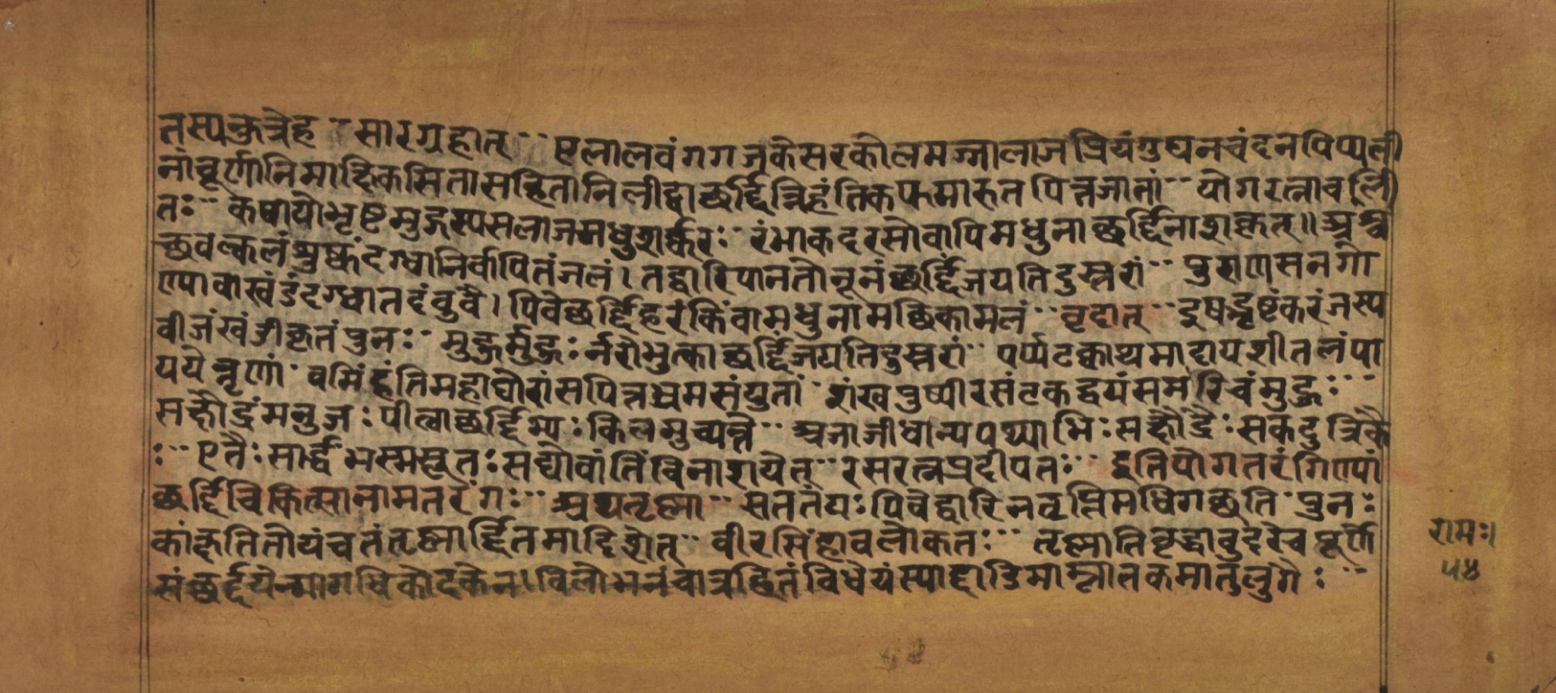 तस्यकुत्रेह -- सारग्रहात् -- एलालवंगगजकेसरकोलमज्जालाजप्रियंगुघनचंदनपिप्पली
नांचूर्णानिमाक्षिकसितासहितानिलीढ्वाछर्द्दिन्निहंतिकफमारुतपित्तजातां -- योगरत्नावलि
तः -- कषायोभृष्टमुद्गस्यसलाजमधुशर्करः -- रंभाकंदरसोवापिमधुनाछर्द्दिनाशकृत्॥ अश्व
च्छवल्कलंशुष्कंदग्ध्वानिर्वापितंजलं। तद्वारिपानतोनूनंछर्द्दिंजयतिदुस्तरां -- पुराणसनगो
ण्यावाखंडंदग्ध्वातदंबुवै। पिवेछर्द्दिहरंकिंवामधुनामछिकामलं -- वृंदात् -- इषद्भृष्टंकरंजस्य
वीजंखंडीकृतंपुनः -- मुहुर्मुहुःर्नरोभुत्काछर्द्दिंजयतिदुस्तरां -- पर्प्पटक्वाथमादायशीतलंपा
ययेन्नृणां -- वमिंहंतिमहाघोरांसपित्तभ्रमसंयुतां -- शंखपुष्पीरसंटंकद्वयंसमरिचंमुहुः --
सक्षौद्रंमनुजः पीत्वाछर्द्दिभ्यः किलमुच्यते -- अजाजीधान्यपथ्याभिः सक्षौद्रैः सकटुत्रिकै
ः -- एतैः सार्द्धंभस्मसूतः सद्योवांतिंविनाशयेत् -- रसरत्नप्रदीपतः -- इतियोगतरंगिण्यां
छर्द्दिचिकित्सानामतरंगः -- अथतृष्णा -- सततंयः पिवेद्वारिनतृप्तिमधिगच्छति -- पुनः
कांक्षतितोयंचतंतृष्णार्द्दितमादिशेत् -- वीरसिंहावलोकतः -- तृष्णातिवृद्धावुदरेचपूर्णे
संछर्द्दयेन्मागधिकोदकेन। विलोभनंचात्रहितंविधेयंस्याद्दाडिमाम्रातकमातुलुंगैः --
रामः।
५४